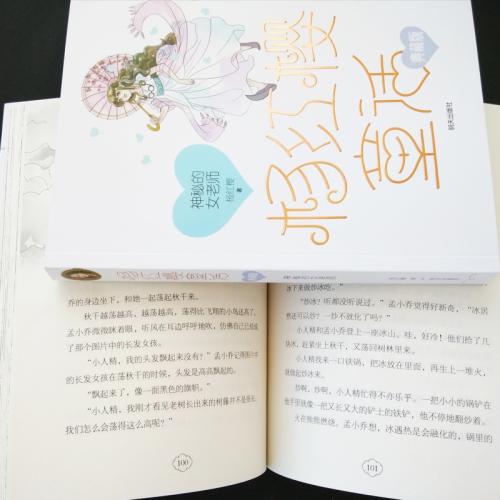 杨红樱
童话
典藏版
神秘的
女老师
杨红樱 著
明天出版社
杨红樱童话
乔的身边坐下，和她一起荡起秋千来。
秋千越荡越高，越荡越高，荡得比飞翔的小鸟还高了。
孟小乔微微眯着眼，听风在耳边呼呼地吹，仿佛自己已经成
了那个图片中的长发女孩。
“小人精，我的头发飘起来没有？”孟小乔记得图片中
的长发女孩在荡秋千的时候，头发是高高飘起的。
“飘起来了，像一面黑色的旗帜。”
“小人精，我刚才看见老树长出来的树藤并不是很长，
我们怎么会荡得这么高呢？”
100
冰下来做炒冰吃。
“炒冰？听都没听说过。”孟小乔觉得好新奇，“冰
居然还可以炒？一炒不就化了吗？”
小人精和孟小乔登上一座冰山。哇，好冷！他们给了几
块冰，赶紧坐上秋千，又荡回树林里来。
小人精找来一口铁锅，把冰放在里面，再生上一堆火，
就做起炒冰来。
炒啊，炒啊，小人精忙得不亦乐乎。一把小小的锅铲在
他手里就像一把又长又大的铲土的铁铲，他不停地翻炒着。
火在熊熊燃烧。孟小乔想，冰遇热是会融化的，锅里的
101